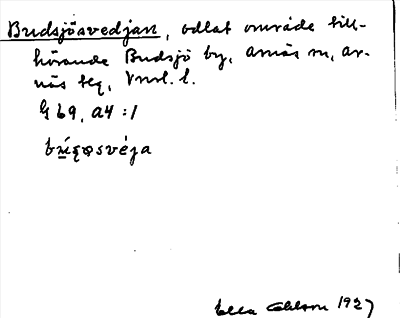 Budsjösvedjan, odlat område till-
hörande Budsjö by, Arnäs sn, Ar-
näs tg, Vnrl. l.
G 69, A4 : 1
Ella Ohlson 1927